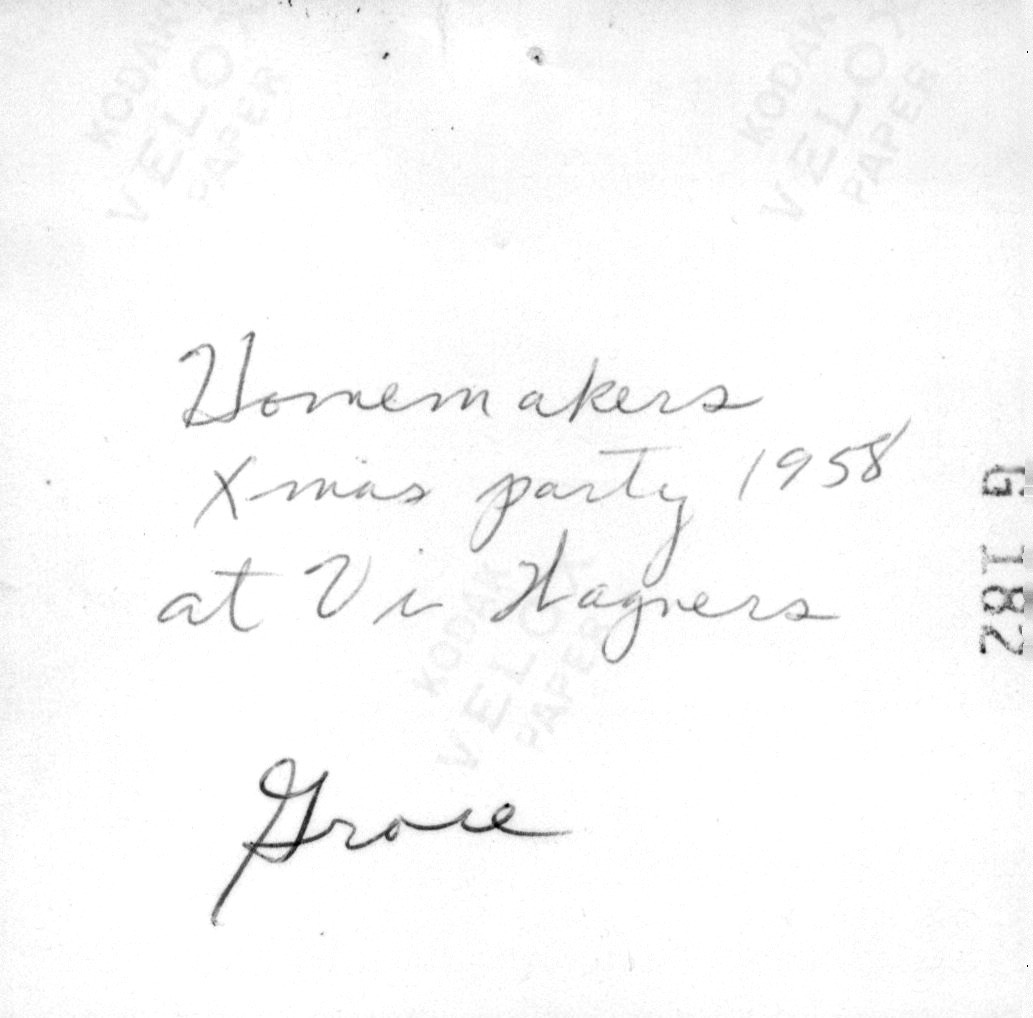 KODAK
VELOX
PAPER
KODAK
VELOX
PAPER
Homemakers
Xmas party 1958
at Vi Wagners
KODAK
VELOX
PAPER
Grace
G 182